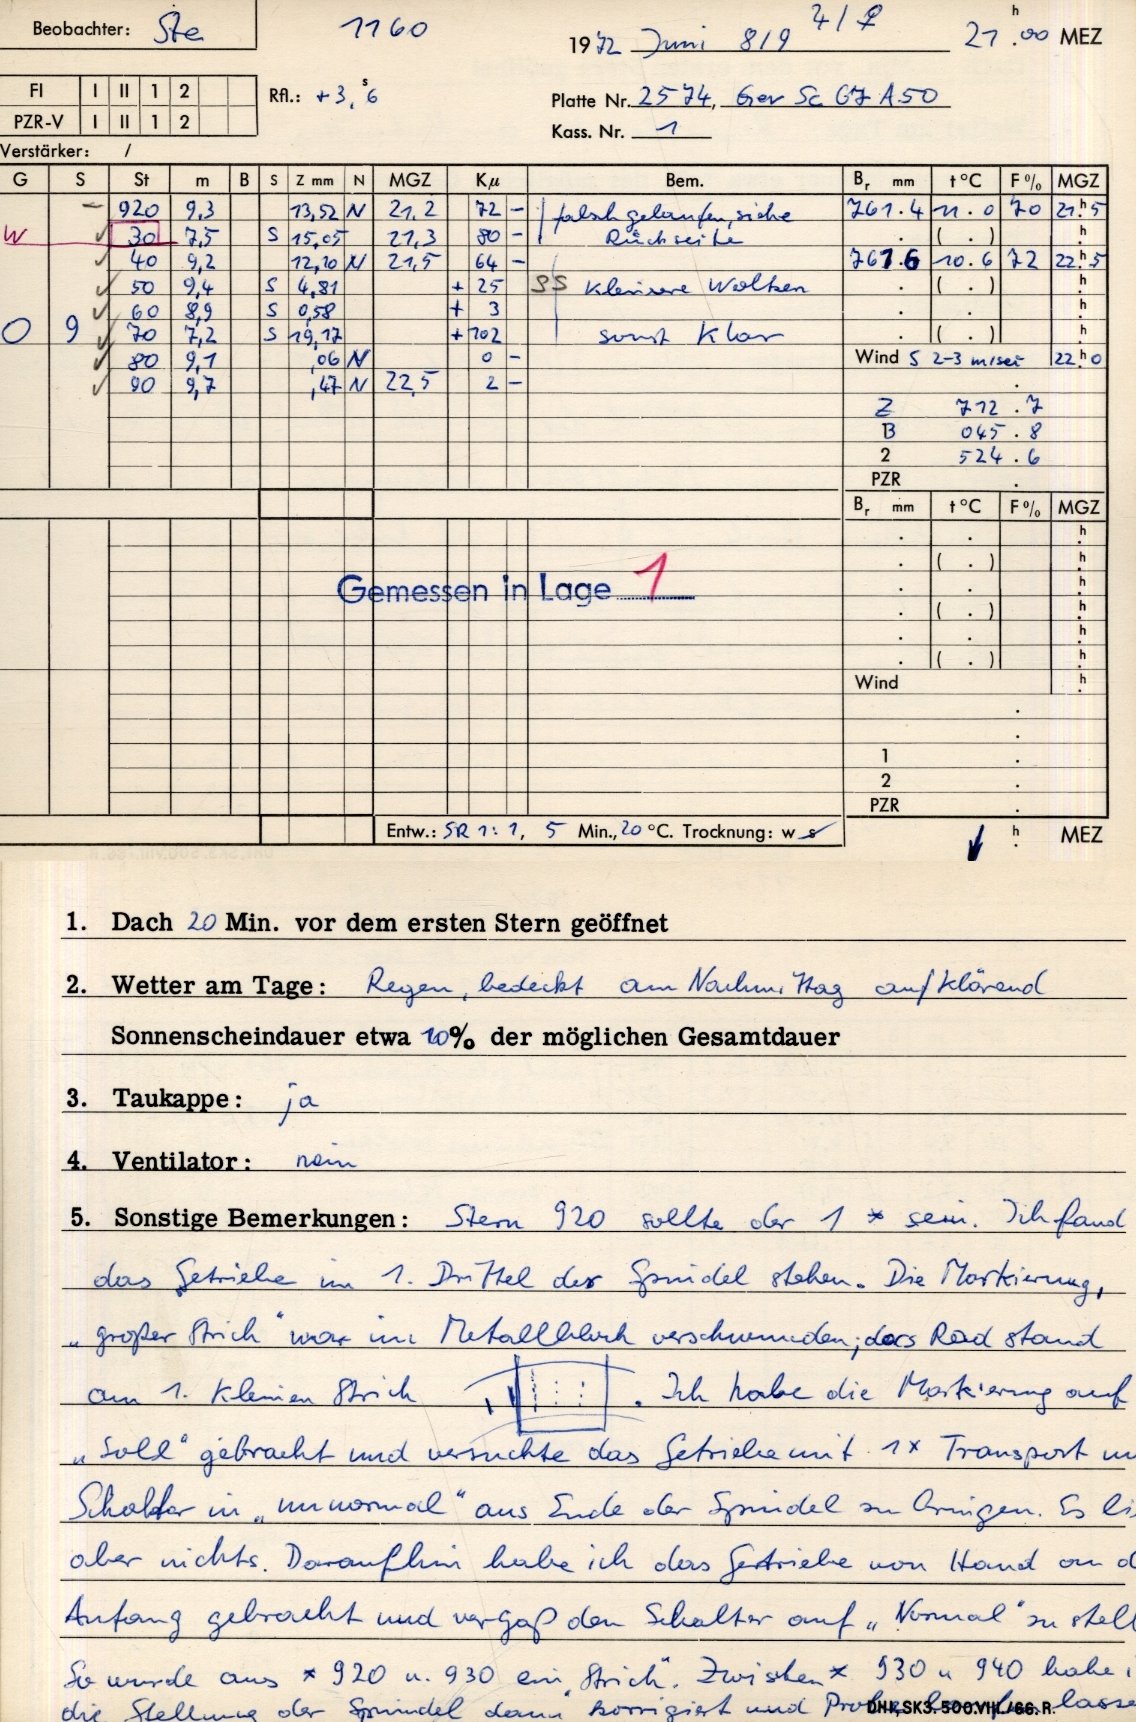 Beobachter: Ste 1160 1972 Juni 8/9 4/♀ 21 h .00 MEZ
FI I II 1 2 Rfl.: +3,s6 Platte Nr. 2574, Gev Sc 67 A50
PZR-V I II 1 2 Kass. Nr. 1
Verstärker: /
G S St m B S Z mm N MGZ Kμ Bem. Br mm t°C F% MGZ
– 920 9,3 13,52 N 21,2 72 – falsch gelaufen, siehe 761.4 11.0 70 21.h5
W ✓ 30 7,5 S 15,05 21,3 80 – Rückseite . ( . ) h.
✓ 40 9,2 12,10 N 21,5 64 – 761.6 10.6 72 22.h5
✓ 50 9,4 S 4,81 + 25 SS kleinere Wolken . ( . ) h.
✓ 60 8,9 S 0,58 + 3 . . h.
O 9 ✓ 70 7,2 S 19,17 +102 sonst klar . ( . ) h.
✓ 80 9,1 ,06 N 0 – Wind S 2-3 m/sec 22.h0
✓ 90 9,7 ,47 N 22,5 2 – .
Z 712.7
B 045.8
2 524.6
PZR .
Br mm t°C F% MGZ
. . h.
. ( . ) h.
Gemessen in Lage 1 . . h.
. ( . ) h.
. . h.
. ( . ) h.
Wind h.
.
.
1 .
2 .
PZR .
Entw.: SR 1:1, 5 Min., 20 °C. Trocknung: w s h. MEZ
1. Dach 20 Min. vor dem ersten Stern geöffnet
2. Wetter am Tage: Regen, bedeckt am Nachmittag aufklärend
Sonnenscheindauer etwa 10% der möglichen Gesamtdauer
3. Taukappe: ja
4. Ventilator: nein
5. Sonstige Bemerkungen: Stern 920 sollte der 1 * sein. Ich fand
das Getriebe im 1. Drittel der Spindel stehen. Die Markierung,
„großer Strich" war im Metallblock verschwunden; das Rad stand
am 1. kleinen Strich . Ich habe die Markierung auf
„Soll" gebracht und versuchte das Getriebe mit 1x Transport
Schalter in „unnormal" ans Ende der Spindel zu bringen. Es
aber nichts. Daraufhin habe ich das Getriebe von Hand an
Anfang gebracht und vergaß den Schalter auf „Normal" zu
So wurde aus * 920 u. 930 ein „Strich". Zwischen * 930 u 940 habe
die Stellung der Spindel dann korrigiert und
DHI, SK3. 500.VIII./66.R.